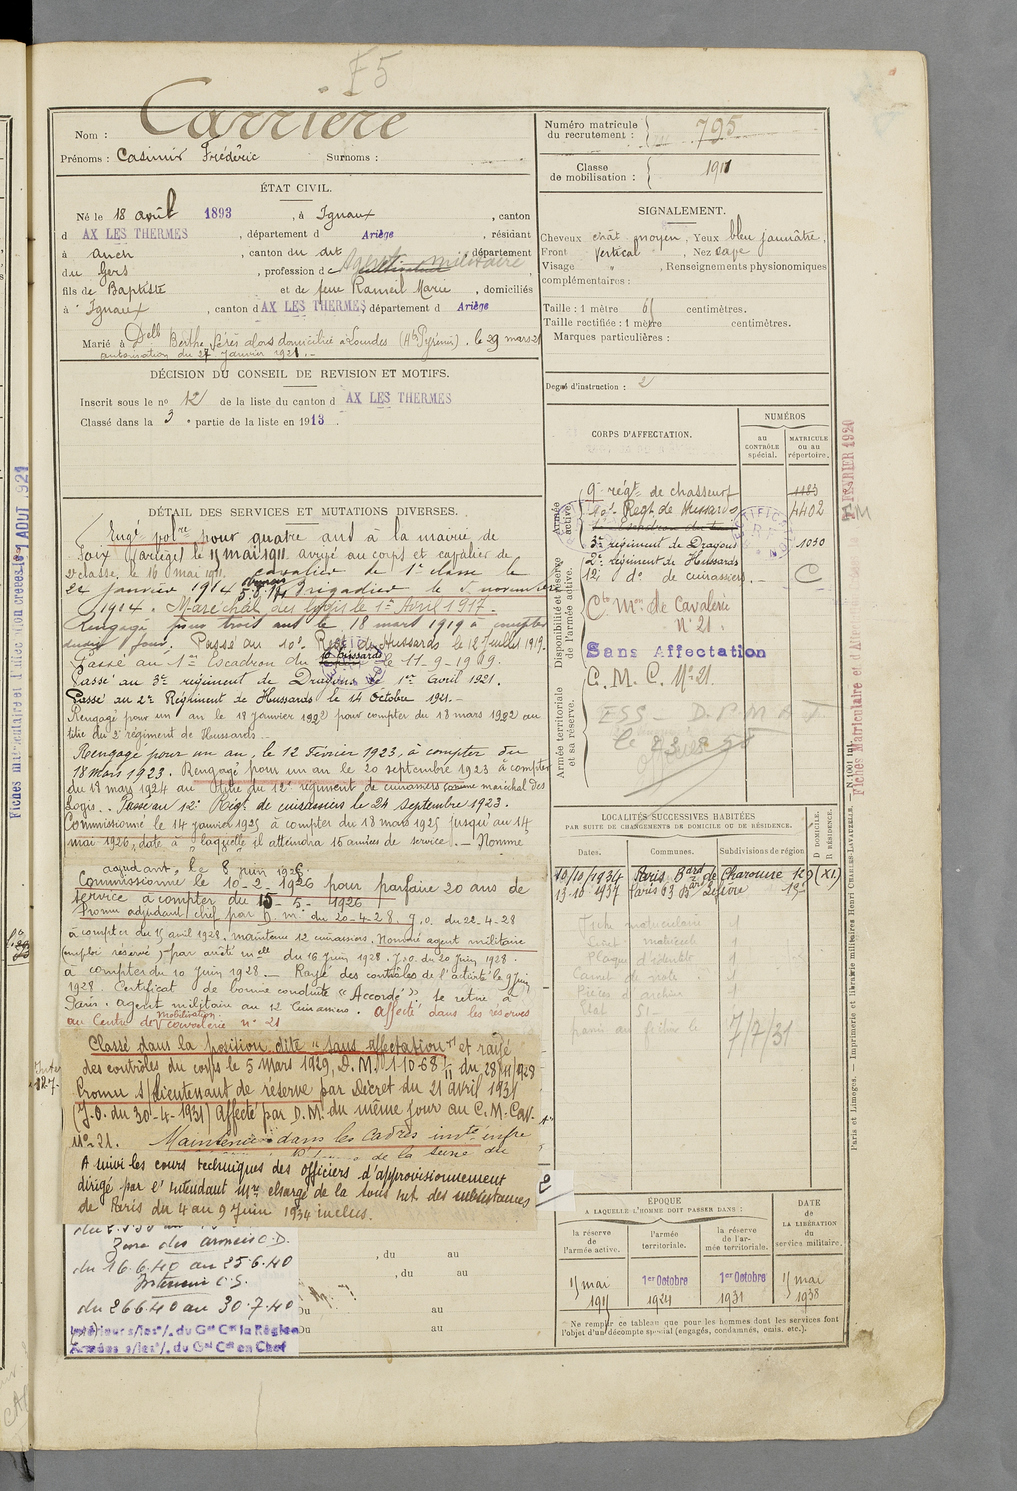 F5
Nom : Carrière
Prénoms : Casimir Frédéric Surnoms :
Numéro matricule du recrutement : 795
Classe de mobilisation : 1911
ÉTAT CIVIL.
Né le 18 avril 1893, à Ignaux, canton
d AX LES THERMES, département d Ariège, résidant
à Auch, canton du dit, département
du Gers, profession de cultivateur Agent militaire,
fils de Baptiste et de feue Rameil Marie, domiciliés
à Ignaux, canton d AX LES THERMES, département d Ariège
Marié à Delle Berthe alors domiciliée à Lourdes (Htes Pyrénées). le 29 mars 21
autorisation du 27 janvier 1921.
SIGNALEMENT.
Cheveux chât. moyen, Yeux bleu jaunâtre,
Front Vertical, Nez cave
Visage " , Renseignements physionomiques
complémentaires :
Taille : 1 mètre 61 centimètres.
Taille rectifiée : 1 mètre centimètres.
Marques particulières :
Degré d'instruction : 2
DÉCISION DU CONSEIL DE REVISION ET MOTIFS.
Inscrit sous le no 12 de la liste du canton d AX LES THERMES
Classé dans la 3 e partie de la liste en 1913.
CORPS D'AFFECTATION.
NUMÉROS
au CONTRÔLE spécial.
MATRICULE ou au répertoire.
Armée active.
9e régt de chasseurs 1183
10e Regt de Hussards 4402
1er Escadron du train
3e régiment de Dragons 1050
2e régiment de Hussards
12e do de cuirassiers.
Disponibilité et réserve de l'armée active.
Cte Mon de Cavalerie
No 21.
Sans Affectation
C. M. C. No 21.
Armée territoriale et sa réserve.
ESS - D.P.M.A.T
officier
DÉTAIL DES SERVICES ET MUTATIONS DIVERSES.
Engé volre pour quatre ans à la mairie de
Foix (Ariège) le 15 mai 1911. arrivé au corps et cavalier de
2e classe, le 16 mai 1911. cavalier de 1re classe le
24 janvier 1914 Brigadier le 5 novembre
1914. Maréchal des logis le 1er Avril 1917.
Rengagé pour trois ans le 18 mars 1919 à compter
dudit jour. Passé au 10e Regt de Hussards le 12 Juillet 1919.
Passé au 1er Escadron du 10 Hussards le 11-9-1919.
Passé au 3e régiment de Dragons le 1er Avril 1921.
Passé au 2e Régiment de Hussards le 14 Octobre 1921.
Rengagé pour un an le 18 janvier 1922 pour compter du 18 mars 1922 au
titre du 2e régiment de Hussards.
Rengagé pour un an, le 12 Février 1923, à compter du
18 mars 1923. Rengagé pour un an le 20 septembre 1923 à compter
du 18 mars 1924 au titre du 12e régiment de cuirassiers comme maréchal des
logis. Passé au 12e Régt de cuirassiers le 24 septembre 1923.
Commissionné le 14 janvier 1925 à compter du 18 mars 1925 jusqu'au 14
mai 1926, date à laquelle il atteindra 15 années de service. - Nommé
adjudant, le 8 juin 1926
Commissionné le 10-2-1926 pour parfaire 20 ans de
service à compter du 15-5-1926
Promu adjudant chef par D.M. du 20-4-28. J.O. du 22-4-28
à compter du 15 avril 1928. maintenu 12 cuirassiers. Nommé agent militaire
(emploi réservé) par arrêté melle du 16 juin 1928. J.O. du 20 juin 1928.
à compter du 10 juin 1928 - Rayé des contrôles de l'activité le 9 juin
1928. Certificat de bonne conduite "Accordé". se retire à
Paris. agent militaire au 12 Cuirassiers. Affecté dans les réserves
au Centre de mobilisation cavalerie no 21
Classé dans la position dite "sans affectation" et rayé
des contrôles du corps le 5 Mars 1929, D.M. no 11068 1/11 du 28/11/1928
Promu s/lieutenant de réserve par Décret du 21 avril 1931
(J.O. du 30-4-1931) Affecté par D.M. du même jour au C.M. Cav.
No 21. Maintenu dans les cadres
A suivi les cours techniques des officiers d'approvisionnement
dirigé par l'Intendant mre chargé de la sous int. des subsistances
de Paris du 4 au 9 Juin 1934 inclus.
Zone des armées C.D.
du 16.6.40 au 25.6.40
Intérieur C.S.
du 26.6.40 au 30.7.40
Intérieur s/les o/. du Gal Ct la Région
Armées s/les o/. du Gal Ct en Chef
, du au
, du au
Du au
Du au
LOCALITÉS SUCCESSIVES HABITÉES
PAR SUITE DE CHANGEMENTS DE DOMICILE OU DE RÉSIDENCE.
Dates. Communes. Subdivisions de région. D DOMICILE. R RÉSIDENCE.
10/10/1934 Paris Bard de Charonne 129 (XI)
13-10-1937 Paris 63 Bard Lefèvre 15e
Fiche matriculaire 1
Livret matricule 1
Plaque d'identité 1
Carnet de note 1
Pièces d'archive 1
Etat
7/7/31
ÉPOQUE
A LAQUELLE L'HOMME DOIT PASSER DANS :
DATE de LA LIBÉRATION du service militaire.
la réserve de l'armée active.
l'armée territoriale.
la réserve de l'armée territoriale.
15 mai 1915
1er Octobre 1924
1er Octobre 1931
15 mai 1938
Ne remplir ce tableau que pour les hommes dont les services font
l'objet d'un décompte spécial (engagés, condamnés, omis, etc.).
Paris et Limoges. — Imprimerie et librairie militaires Henri CHARLES-LAVAUZELLE. — N° 1001 int.